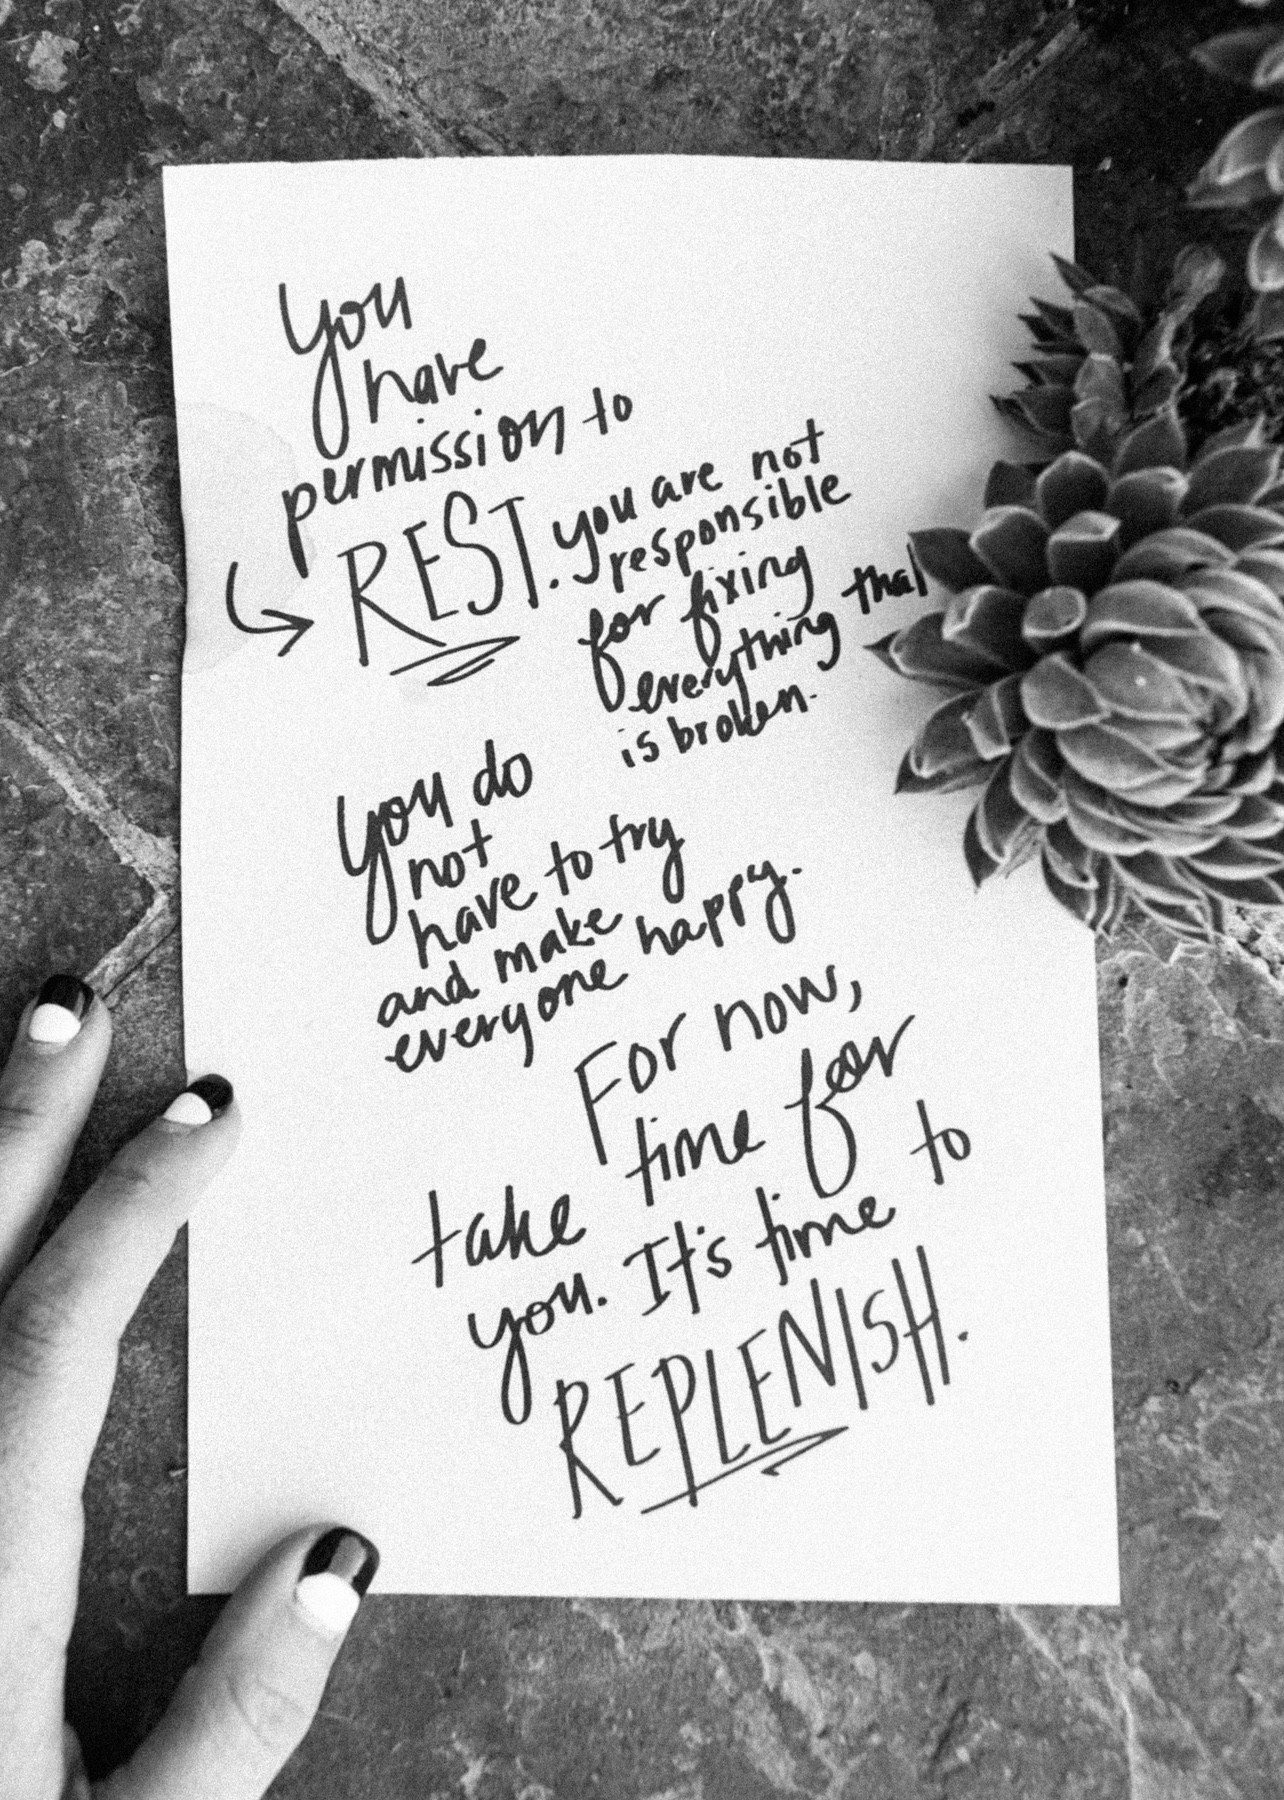 You
have
permission to
REST. you are not
responsible
for fixing
everything that
is broken.
You do
not
have to try
and make
everyone happy.
For now,
take time for
you. It's time to
REPLENISH.